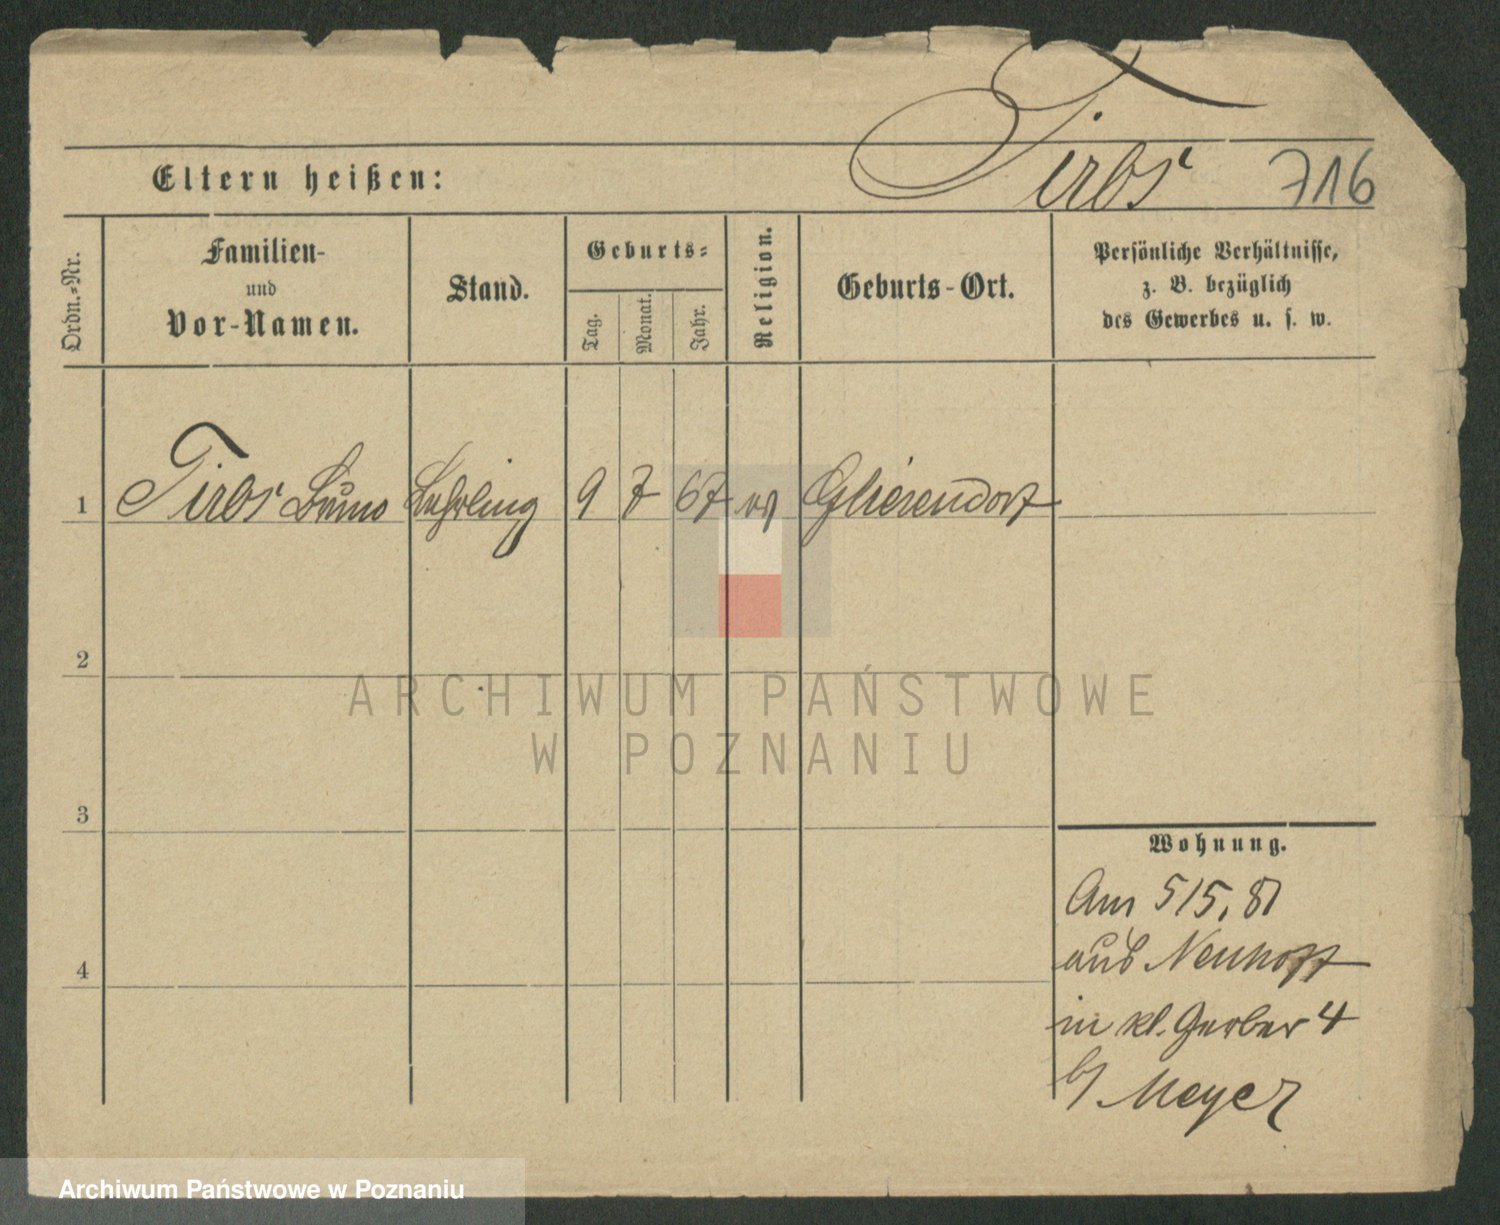 Tirbs 716
Eltern heißen:
Ordn.-Nr.
Familien-
und
Vor-Namen.
Stand.
Geburts-
Tag.
Monat.
Jahr.
Religion.
Geburts-Ort.
Persönliche Verhältnisse,
z. B. bezüglich
des Gewerbes u. s. w.
1 Tirbs Bruno Lehrling 9 7 67 ev Gliesendorf
2
3
4
Wohnung.
Am 5/5. 81
aus Neuhoff
in kl. Gerber 4
b/ Meyer
ARCHIWUM PAŃSTWOWE
W POZNANIU
Archiwum Państwowe w Poznaniu